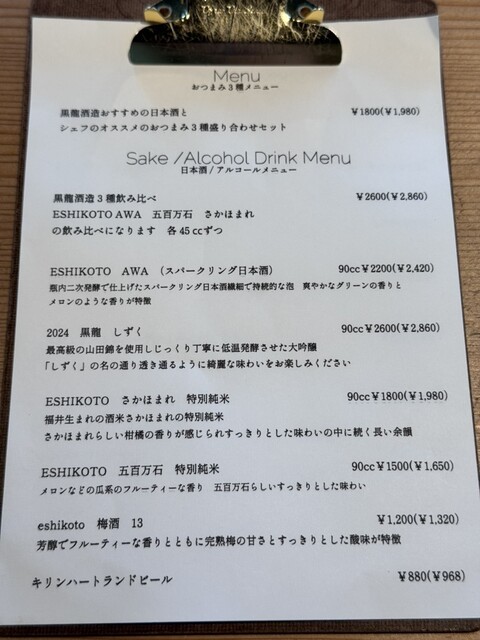 Menu
おつまみ3種メニュー
黒龍酒造おすすめの日本酒と ¥1800(¥1,980)
シェフのオススメのおつまみ3種盛り合わせセット
Sake /Alcohol Drink Menu
日本酒/アルコールメニュー
黒龍酒造3種飲み比べ ¥2600(¥2,860)
ESHIKOTO AWA 五百万石 さかほまれ
の飲み比べになります 各45ccずつ
ESHIKOTO AWA (スパークリング日本酒) 90cc¥2200(¥2,420)
瓶内二次発酵で仕上げたスパークリング日本酒繊細で持続的な泡 爽やかなグリーンの香りと
メロンのような香りが特徴
2024 黒龍 しずく 90cc¥2600(¥2,860)
最高級の山田錦を使用しじっくり丁寧に低温発酵させた大吟醸
「しずく」の名の通り透き通るように綺麗な味わいをお楽しみください
ESHIKOTO さかほまれ 特別純米 90cc¥1800(¥1,980)
福井生まれの酒米さかほまれの特別純米
さかほまれらしい柑橘の香りが感じられすっきりとした味わいの中に続く長い余韻
ESHIKOTO 五百万石 特別純米 90cc¥1500(¥1,650)
メロンなどの瓜系のフルーティーな香り 五百万石らしいすっきりとした味わい
eshikoto 梅酒 13 ¥1,200(¥1,320)
芳醇でフルーティーな香りとともに完熟梅の甘さとすっきりとした酸味が特徴
キリンハートランドビール ¥880(¥968)